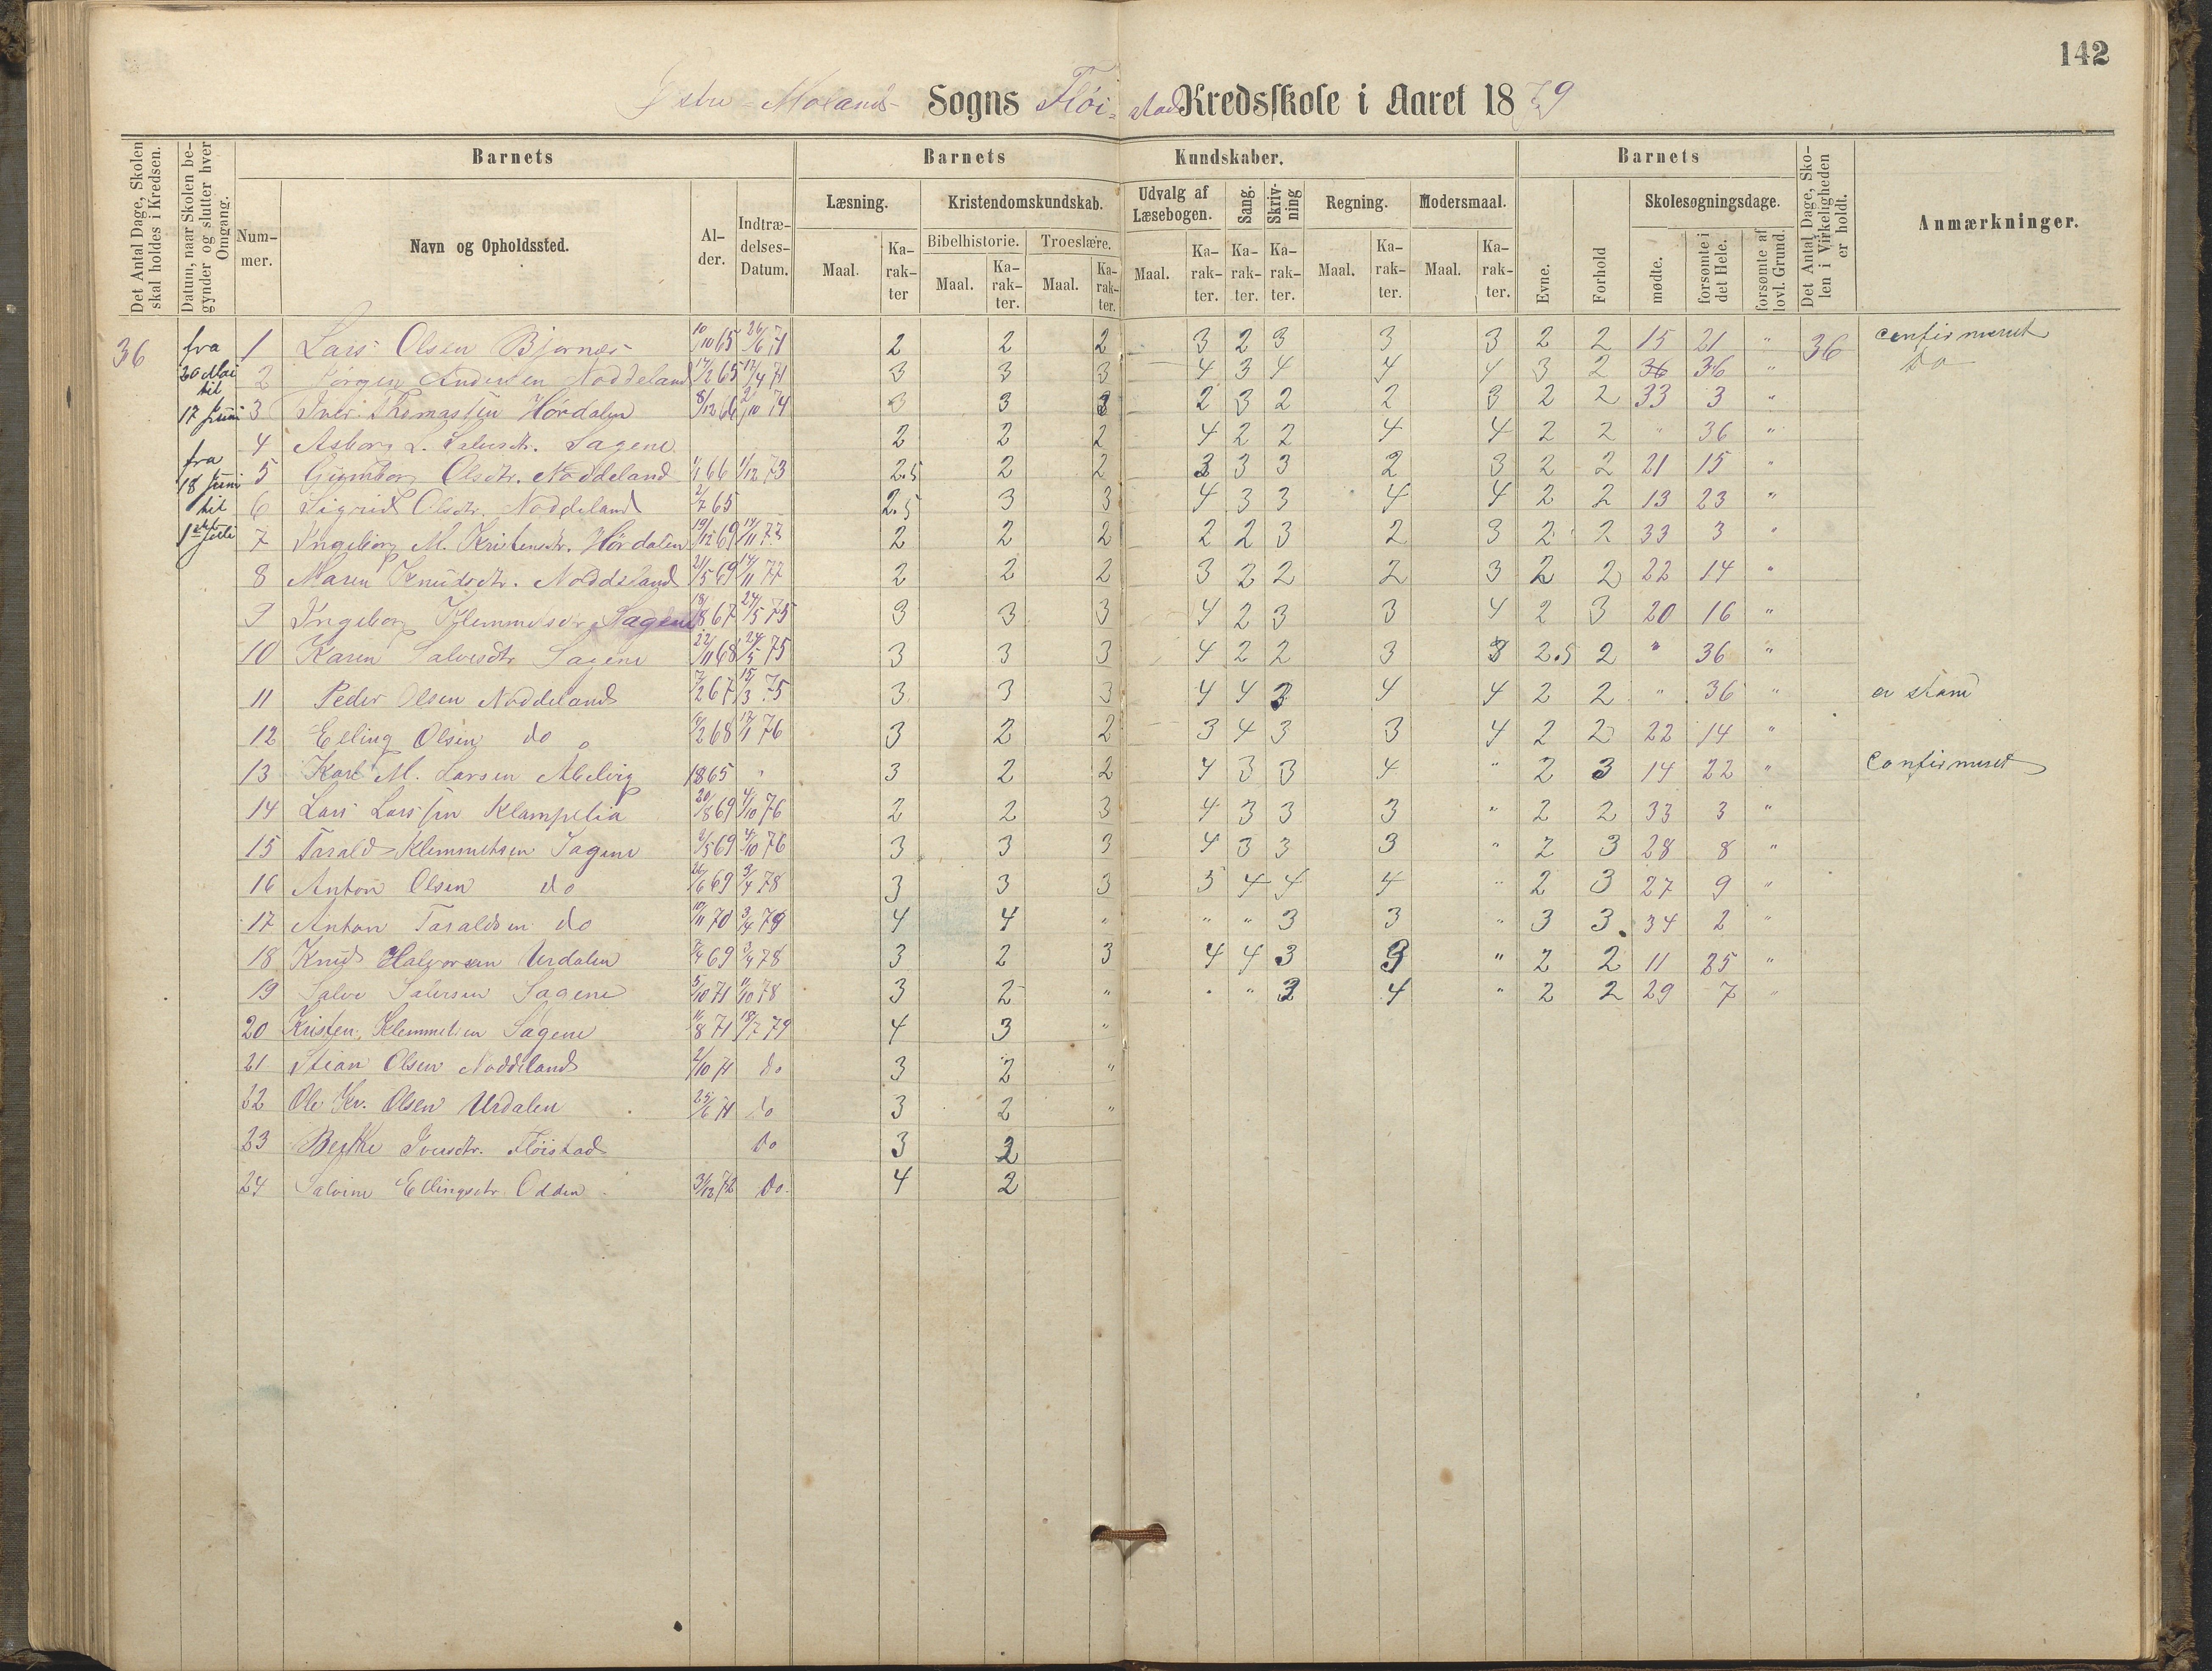 142
Østre-Molands- Sogns Flöi=stad Kredsskole i Aaret 1879
Det Antal Dage, Skolen skal holdes i Kredsen.
Datum, naar Skolen begynder og slutter hver Omgang.
Barnets
Barnets Kundskaber.
Barnets
Det Antal Dage, Skolen i Virkeligheden er holdt.
Anmærkninger.
Nummer.
Navn og Opholdssted.
Alder.
Indtrædelses-Datum.
Læsning.
Kristendomskundskab.
Udvalg af Læsebogen.
Sang.
Skrivning
Regning.
Modersmaal.
Evne.
Forhold
Skolesøgningsdage.
Bibelhistorie.
Troeslære.
Maal. Karakter Maal. Karakter. Maal. Karakter. Maal. Karakter. Karakter. Karakter. Maal. Karakter. Maal. Karakter.
mødte.
forsømte i det Hele.
forsømte af lovl. Grund.
36
fra
20 Mai
til
17 Juni
fra
18 Juni
til
1st Juli
1 Lars Olsen Bjornes 10/10 65 26/6 71 2 2 2 3 2 3 3 3 2 2 15 21 " 36 confirmeret
2 Jörgen Andersen Noddeland 14/2 65 17/4 71 3 3 3 4 3 4 4 4 3 2 36 36 " Do
3 Iver Thomassen Hördalen 8/12 66 2/10 74 3 3 3 2 3 2 2 3 2 2 33 3 "
4 Asborg L. Salvesdtr. Sagene 2 2 2 4 2 2 4 4 2 2 " 36 "
5 Gunborg Olsdtr. Noddeland 1/1 66 1/12 73 2.5 2 2 3 3 3 2 3 2 2 21 15 "
6 Sigrid Olsdtr. Noddeland 2/7 65 2.5 3 3 4 3 3 4 4 2 2 13 23 "
7 Ingeborg M. Kristensdtr. Hördalen 19/12 69 14/11 77 2 2 2 2 2 3 2 3 2 2 33 3 "
8 Maren Knudsdtr. Noddeland 21/5 69 14/11 77 2 2 2 3 2 2 2 3 2 2 22 14 "
9 Ingeborg Klemmetsdtr. Sagene 18/8 67 24/5 75 3 3 3 4 2 3 3 4 2 3 20 16 "
10 Karen Salvesdtr Sagene 22/11 68 24/5 75 3 3 3 4 2 2 3 3 2.5 2 " 36 "
11 Peder Olsen Noddeland 7/2 67 15/3 75 3 3 3 4 4 3 4 4 2 2 " 36 "
12 Elling Olsen do 4/2 68 17/1 76 3 2 2 3 4 3 3 4 2 2 22 14 "
13 Karl M. Larsen Abelvig 1865 " 3 2 2 4 3 3 4 " 2 3 14 22 " Confirmeret
14 Lars Larssen Klampelia 20/8 69 4/10 76 2 2 3 4 3 3 3 " 2 2 33 3 "
15 Tarald Klemmetsen Sagene 2/5 69 4/10 76 3 3 3 4 3 3 3 " 2 3 28 8 "
16 Anton Olsen do 26/6 69 3/4 78 3 3 3 5 4 4 4 " 2 3 27 9 "
17 Anton Taraldsen do 10/11 70 3/4 79 4 4 " " " 3 3 " 3 3 34 2 "
18 Knud Halvorsen Urdalen 7/4 69 3/4 78 3 2 3 4 4 3 3 " 2 2 11 25 "
19 Salve Salvesen Sagene 5/10 71 11/10 78 3 2 " " " 3 4 " 2 2 29 7 "
20 Kristen Klemmetsen Sagene 11/8 71 18/7 79 4 3 "
21 Stian Olsen Noddeland 2/10 71 do 3 2 "
22 Ole Kr. Olsen Urdalen 25/6 71 do 3 2 "
23 Iversdtr. Flöistad Do 3 2
24 Salvine Ellingsdtr. Odden 31/12 72 Do. 4 2